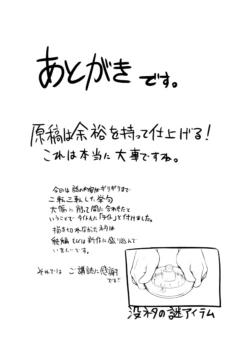 あとがきです。
原稿は余裕を持って仕上げる!
これは本当に大事ですね。
今回は話の内容がギリギリまで
二転三転した挙句
大幅に削って間に合わせたと
いうことでタイトルに「ライト」と付けました。
描き切れなかったネタは
総編もしくは新作に盛り込んで
いきたいです。
それでは ご購読に感謝
です!!
没ネタの謎アイテム